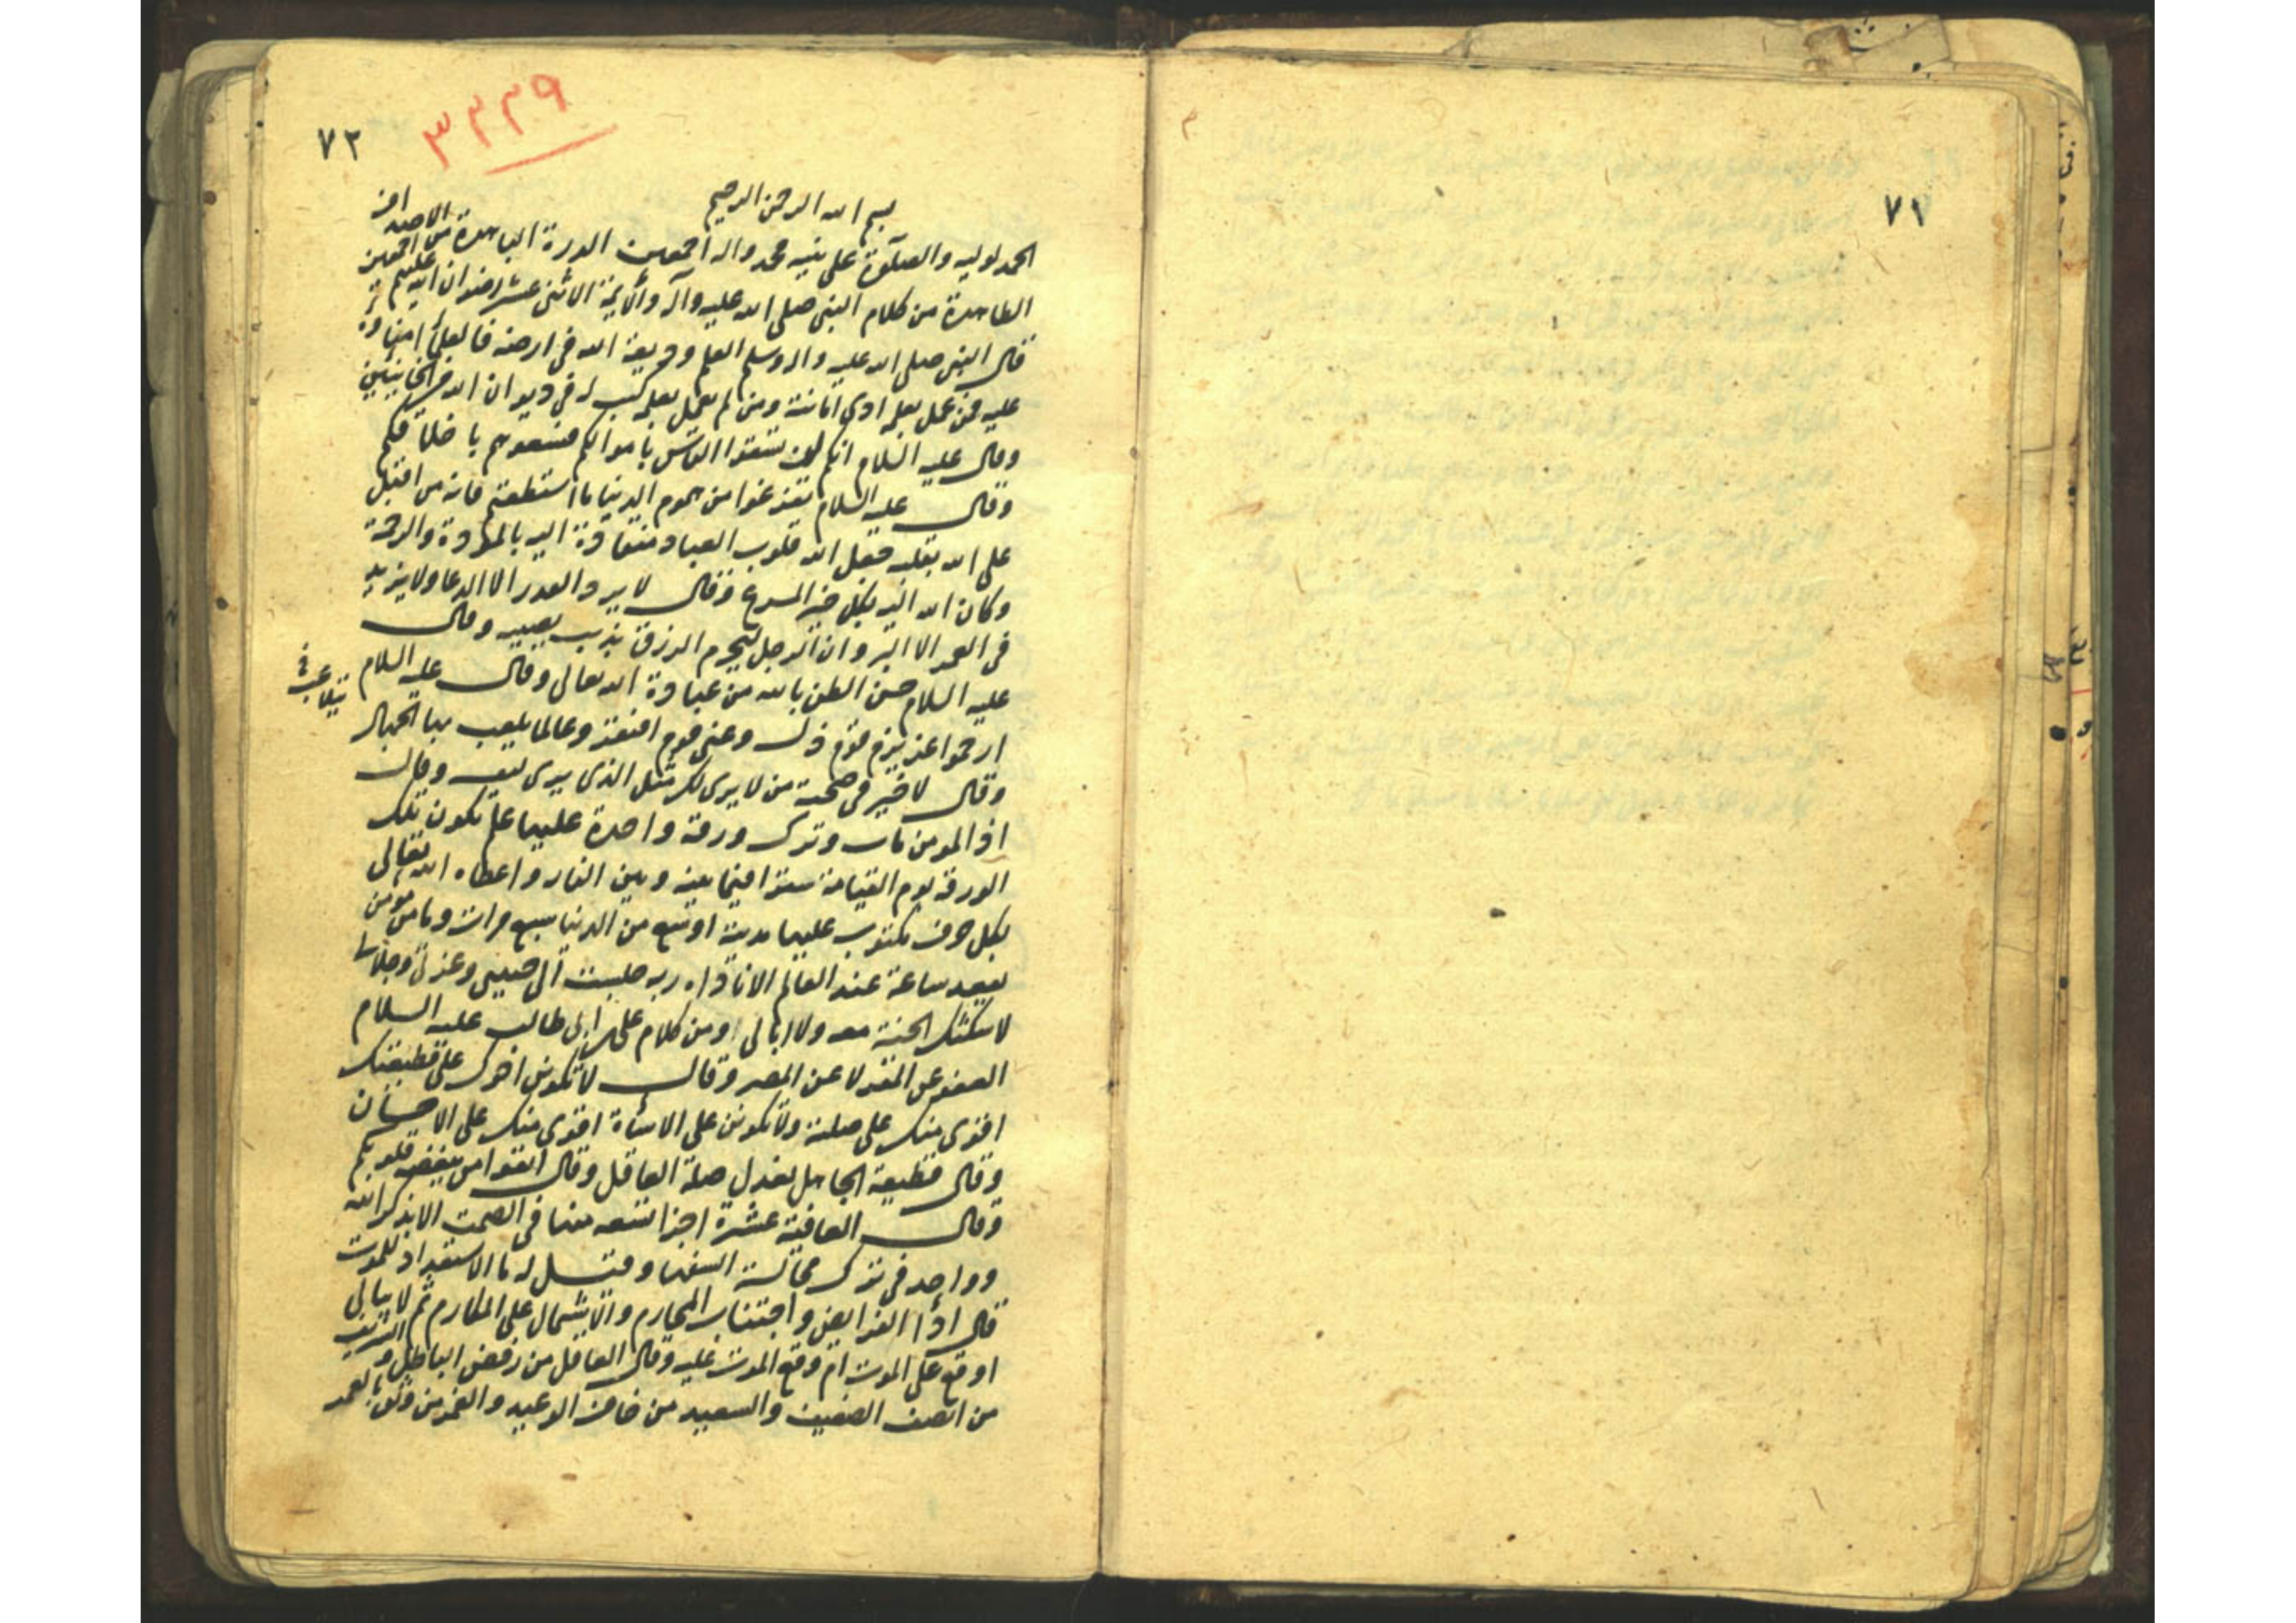 ٧١
٧٢
٣٣٣٩
بسم الله الرحمن الرحيم
الحمد لوليه والصلوة على نبيه محمد واله اجمعين الدرة الباهرة من الاصداف
الطاهرة من كلام النبى صلى الله عليه وآله والأيمة الاثنى عشر رضوان الله عليهم اجمعين
قال النبى صلى الله عليه واله وسلم العلم وديعة الله فى ارضه فالعلماء امناؤه
عليه فمن عمل بعلمه ادى امانته ومن لم يعمل بعلمه كتب له فى ديوان الله من الخائنين
وقال عليه السلام انكم لن تسعوا الناس باموالكم فسعوهم باخلاقكم
وقال عليه السلام تفرغوا من هموم الدنيا ما استطعتم فانه من اقبل
على الله بقلبه جعل الله قلوب العباد منقادة اليه بالمودة والرحمة
وكان الله اليه بكل خير اسرع وقال لا يرد القدر الا الدعا ولا يزيد
فى العمر الا البر وان الرجل ليحرم الرزق بذنب يصيبه وقال
عليه السلام حسن الظن بالله من عبادة الله تعالى وقال عليه السلام
ارحموا عزيز قوم ذل وغنى قوم افتقر وعالما يلعب بها الجهال
يتلاعب خ
وقال لا خير فى صحبة من لا يرى لك مثل الذى يرى لنفسه وقال
اذا المومن مات وترك ورقة واحدة عليها علم تكون تلك
الورقة يوم القيامة سترا فيما بينه وبين النار واعطاه الله تعالى
بكل حرف مكتوب عليها مدينة اوسع من الدنيا سبع مرات وما من مومن
يقعد ساعة عند العالم الا ناداه ربه جلست الى حبيبى وعزتى وجلالى
لاسكنتك الجنة معه ولا ابالى ومن كلام على بن ابى طالب عليه السلام
العفو عن المقر لا عن المصر وقال لا يكونن اخوك على قطيعتك
اقوى منك على صلته ولا تكونن على الاساءة اقوى منك على الاحسان
وقال قطيعة الجاهل تعدل صلة العاقل وقال اتقوا من تبغضه قلوبكم
وقال العافية عشرة اجزا تسعه منها فى الصمت الا بذكر الله
وواحد فى ترك مجالسة السفها وقيل له ما الاستعداد للموت
قال اداا الفرايض واجتناب المحارم والاشتمال على المكارم ثم لا يبالى
اوقع على الموت ام وقع الموت عليه وقال العاقل من رفض الباطل و
من انصف الضعيف والسعيد من خاف الوعيد